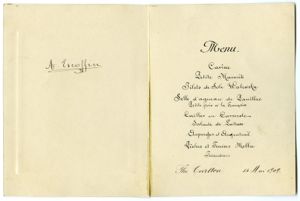 Menu.
Caviar
Petite Marmite
Filets de Sole Walewska
Selle d'agneau de Pauillac
Petits pois à la française
Cailles en Cocotte
Salade de Laitues
Asperges d'Argenteuil
Pêches et Fraises Melba
Friandises
The Carlton 13 Mai 1909.